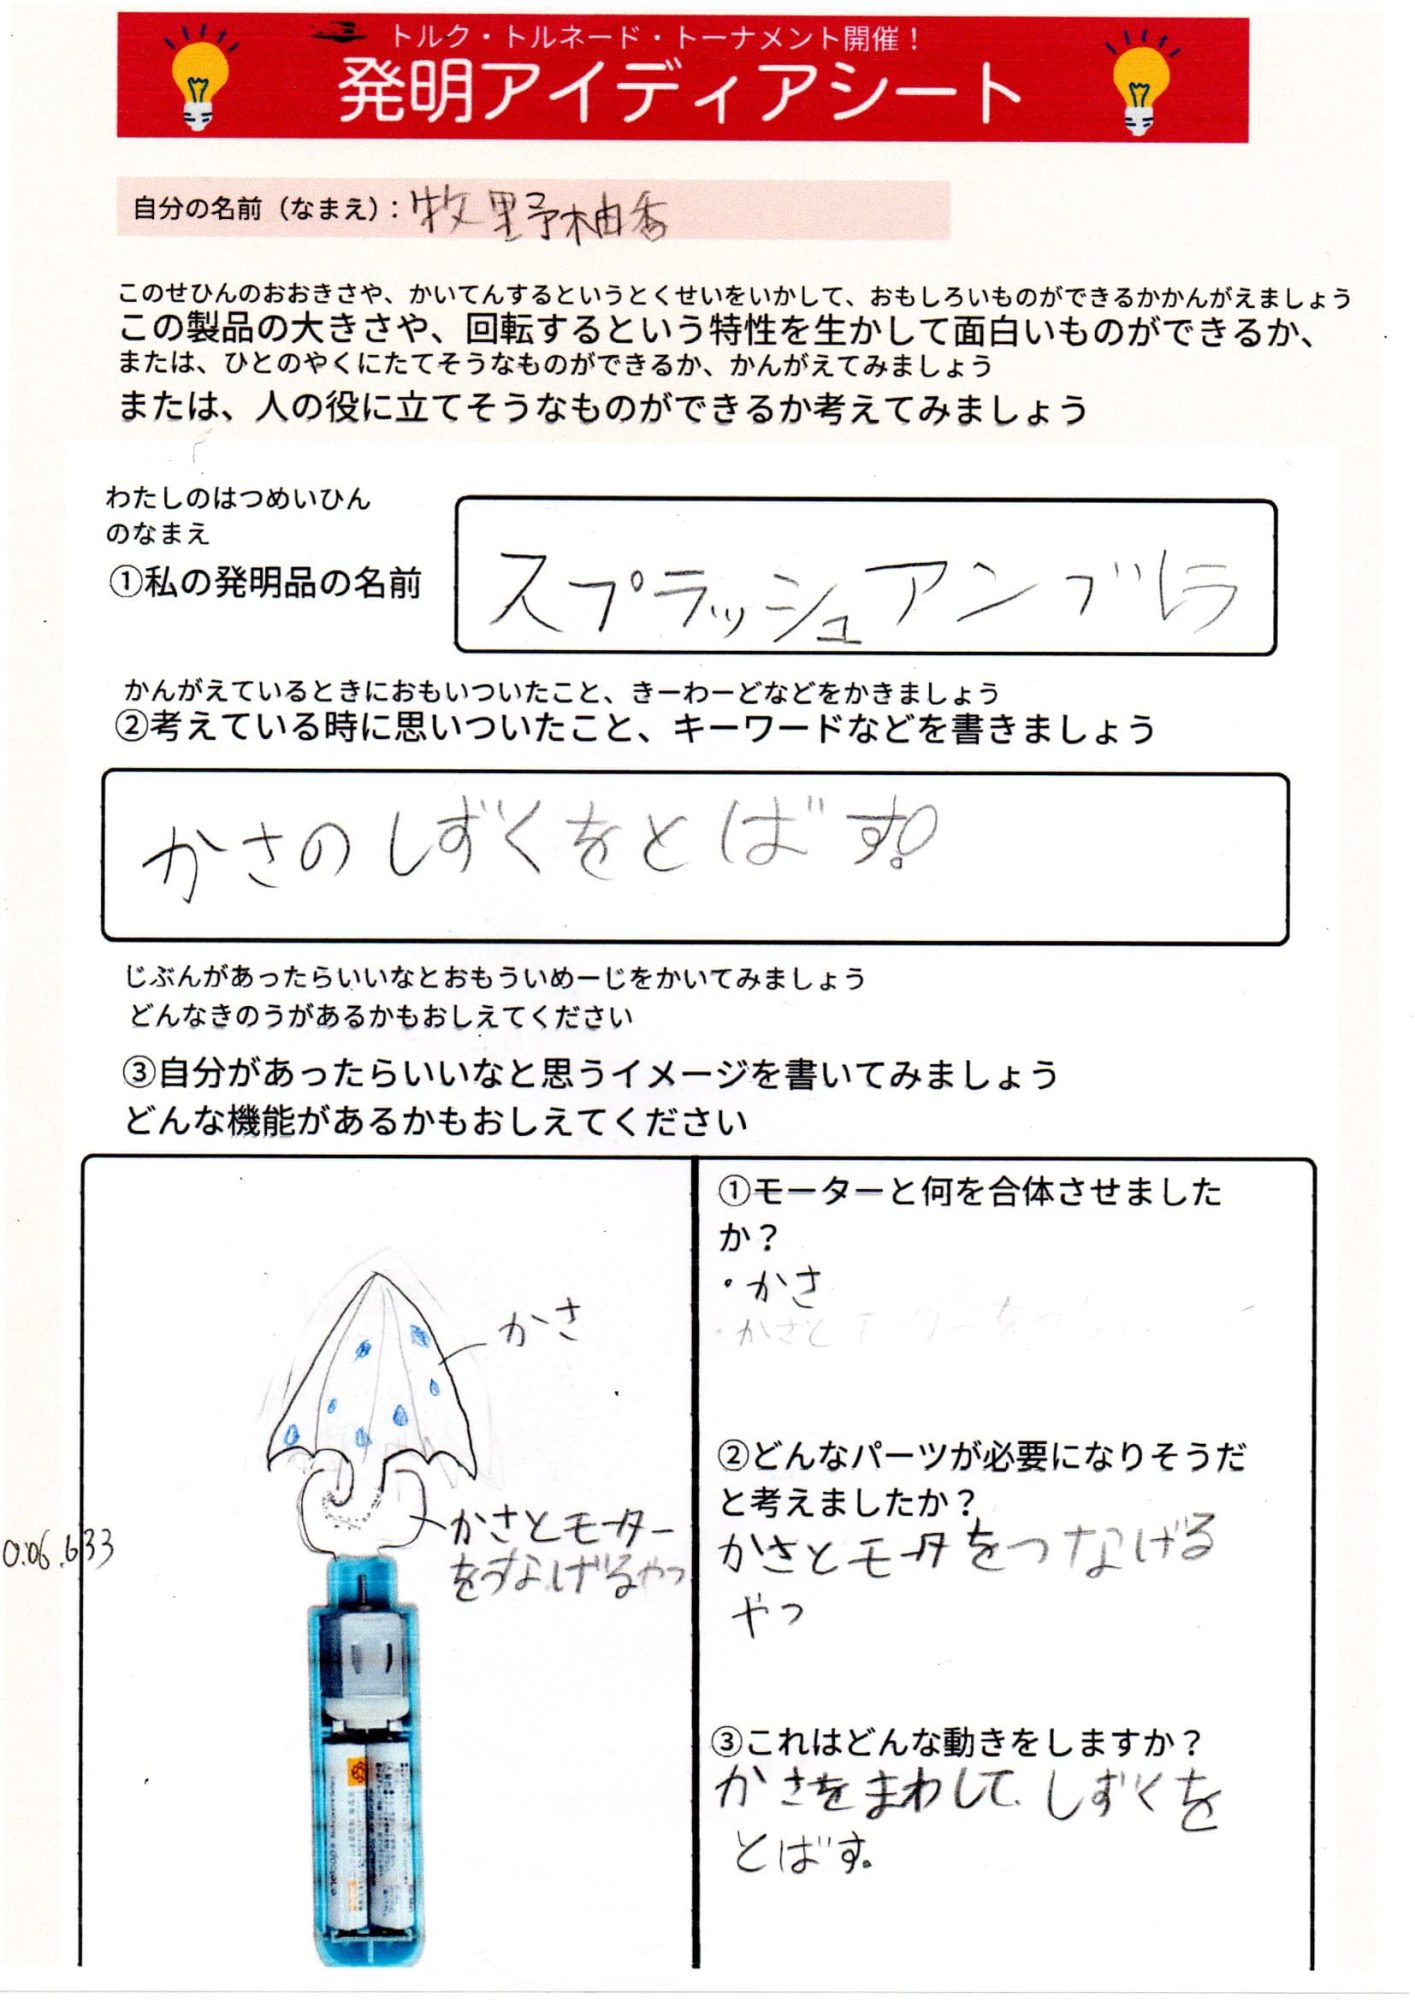 トルク・トルネード・トーナメント開催！
発明アイディアシート
自分の名前（なまえ）：牧野柚香
このせひんのおおきさや、かいてんするというとくせいをいかして、おもしろいものができるかかんがえましょう
この製品の大きさや、回転するという特性を生かして面白いものができるか、
または、ひとのやくにたてそうなものができるか、かんがえてみましょう
または、人の役に立てそうなものができるか考えてみましょう
わたしのはつめいひん
のなまえ
①私の発明品の名前
スプラッシュアンブレラ
かんがえているときにおもいついたこと、きーわーどなどをかきましょう
②考えている時に思いついたこと、キーワードなどを書きましょう
かさのしずくをとばす。
じぶんがあったらいいなとおもういめーじをかいてみましょう
どんなきのうがあるかもおしえてください
③自分があったらいいなと思うイメージを書いてみましょう
どんな機能があるかもおしえてください
かさ
かさとモーター
をつなげるやつ
0.06.633
①モーターと何を合体させました
か？
・かさ
②どんなパーツが必要になりそうだ
と考えましたか？
かさとモータをつなげる
やつ
③これはどんな動きをしますか？
かさをまわして、しずくを
とばす。